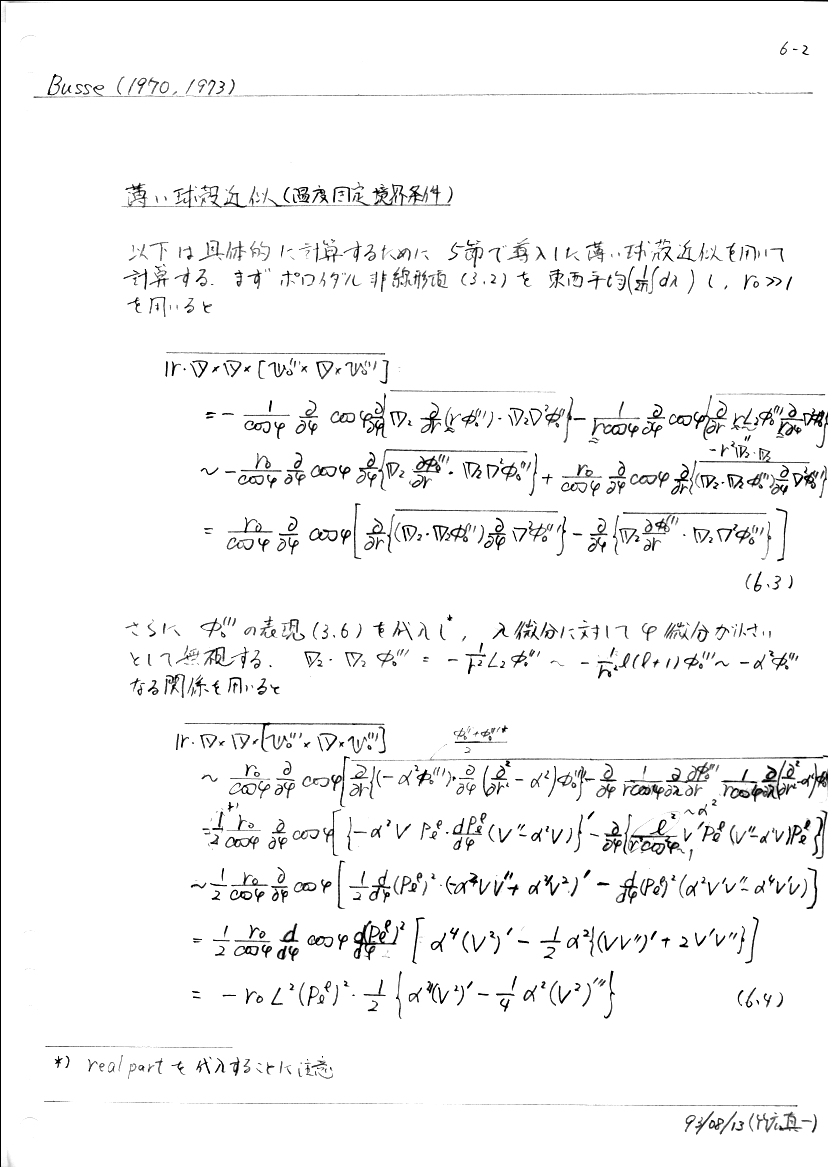 6-2
Busse (1970, 1973)
薄い球殻近似(温度固定境界条件)
以下は具体的に計算するために 5節で導入した薄い球殻近似を用いて
計算する. まず ポロイダル 非線形項 (3.2) を 東西平均(1/2π ∫dλ) し, r₀ ≫ 1
を用いると
𝕣·∇×∇×[𝕌₀‴×∇×𝕌₀‴]
= - 1/cosφ ∂/∂φ cosφ ∂/∂φ {∇₂ ∂/∂r (rΦ₀‴)·∇₂∇²Φ₀‴} - 1/(r cosφ) ∂/∂φ cosφ {∂/∂r rL₂Φ₀‴ ∂/(r∂φ) ∇²Φ₀‴}
-r²∇₂·∇₂
~ - r₀/cosφ ∂/∂φ cosφ ∂/∂φ {∇₂ ∂Φ₀‴/∂r · ∇₂∇²Φ₀‴} + r₀/cosφ ∂/∂φ cosφ ∂/∂r {(∇₂·∇₂Φ₀‴) ∂/∂φ ∇²Φ₀‴}
= r₀/cosφ ∂/∂φ cosφ [∂/∂r {(∇₂·∇₂Φ₀‴) ∂/∂φ ∇²Φ₀‴} - ∂/∂φ {∇₂ ∂Φ₀‴/∂r · ∇₂∇²Φ₀‴}]
(6.3)
さらに Φ₀‴ の表現 (3.6) を代入し*, λ微分に対して φ微分が小さい
として無視する. ∇₂·∇₂ Φ₀‴ = - 1/r² L₂Φ₀‴ ~ - 1/r₀² l(l+1)Φ₀‴ ~ -α²Φ₀‴
なる関係を用いると
𝕣·∇×∇×[𝕌₀‴×∇×𝕌₀‴]
~ r₀/cosφ ∂/∂φ cosφ [∂/∂r {(-α²Φ₀‴)·∂/∂φ (∂²/∂r² - α²)Φ₀‴} - ∂/∂φ 1/(r cosφ) ∂/∂λ ∂Φ₀‴/∂r 1/(r cosφ) ∂/∂λ (∂²/∂r² - α²)Φ₀‴
= 1/2 r₀/cosφ ∂/∂φ cosφ [{-α² V Pₑˡ · dPₑˡ/dφ (V″-α²V)}′ - ∂/∂φ {l²/(r²cos²φ) V′Pₑˡ (V″-α²V)Pₑˡ}]
~ 1/2 r₀/cosφ ∂/∂φ cosφ [1/2 d/dφ (Pₑˡ)²·(-α²VV″ + α⁴V²)′ - d/dφ (Pₑˡ)² (α²V′V″ - α⁴V′V)]
= 1/2 r₀/cosφ d/dφ cosφ d(Pₑˡ)²/dφ [α⁴(V²)′ - 1/2 α²{(VV″)′ + 2V′V″}]
= -r₀ L²(Pₑˡ)²· 1/2 {α⁴(V²)′ - 1/4 α²(V²)‴} (6.4)
*) real part を代入することに注意
93/08/13